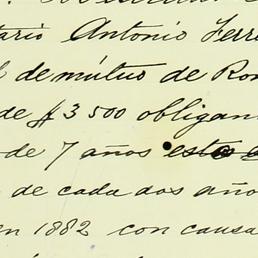 tario Antonio Ferr
de mútuo de Rom
de $3 500 obligan
de 7 años esto
de cada dos año
en 1882 con causa